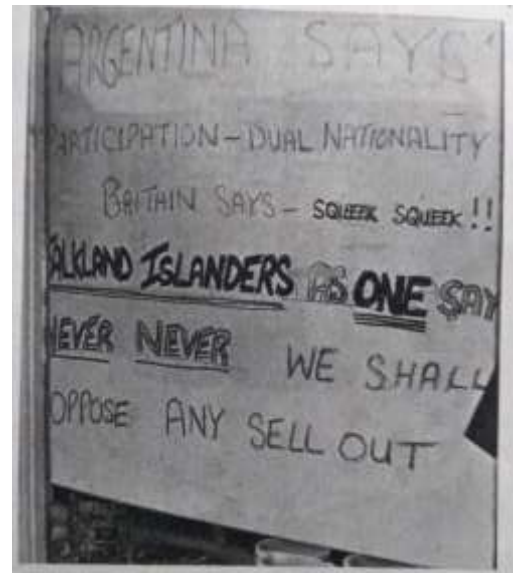 ARGENTINA SAYS'
"PARTICIPATION - DUAL NATIONALITY
BRITAIN SAYS - SQUEEK SQUEEK!!
FALKLAND ISLANDERS AS ONE SAY
NEVER NEVER WE SHALL
OPPOSE ANY SELL OUT